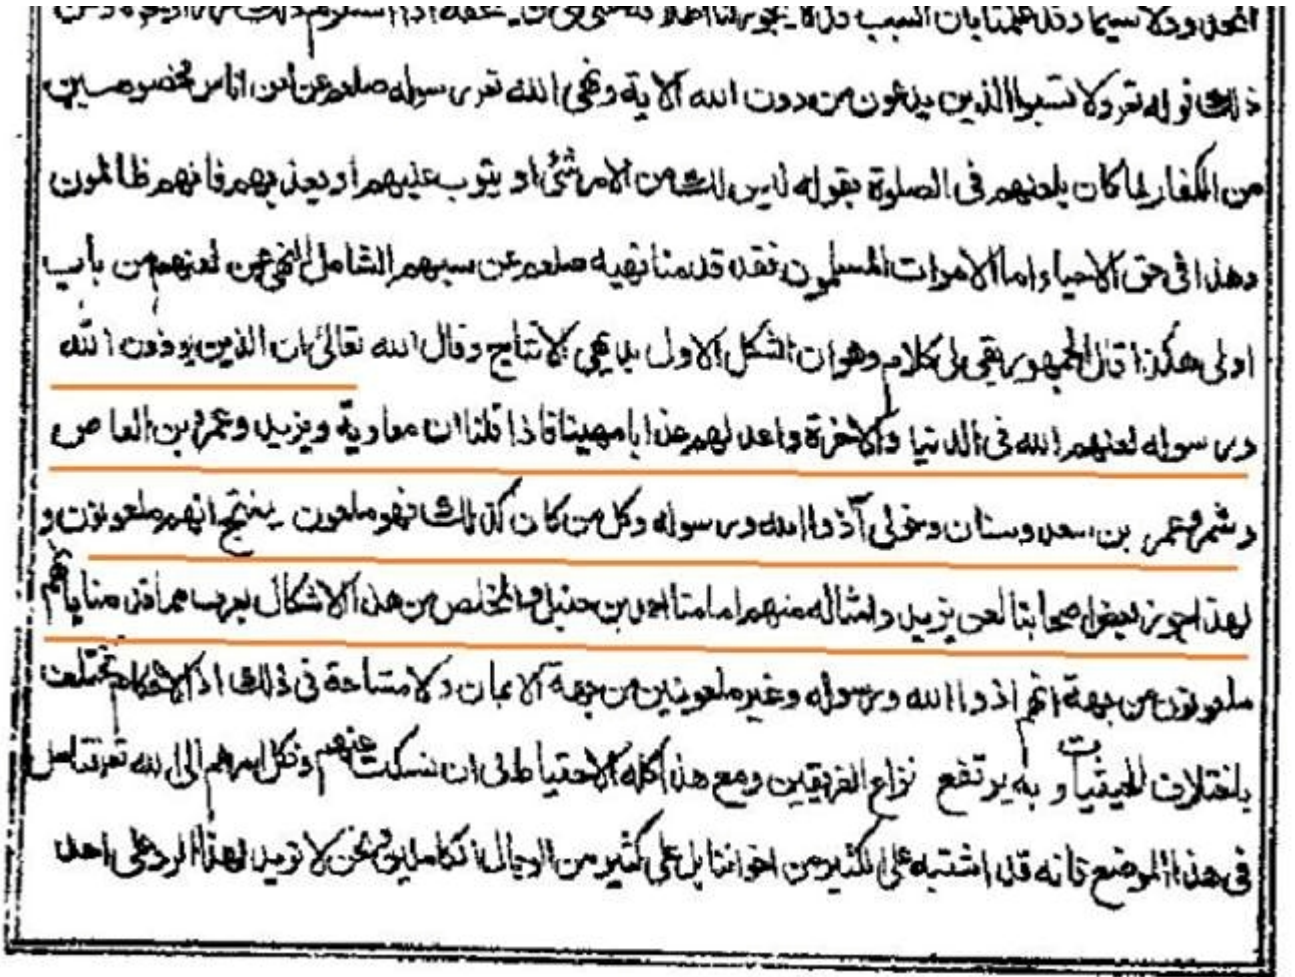 ولا سيما وقد علمنا بان السبب قد لا يجوز لنا
ذلك قوله تعر ولا تسبوا الذين يدعون من دون الله الآية ونهى الله تعر رسوله صلعم عن لعن اناس مخصوصين
من الكفار لما كان يلعنهم في الصلوة بقوله ليس لك من الامر شئ او يتوب عليهم او يعذبهم فانهم ظالمون
وهذا في حق الاحياء واما الاموات المسلمون فقد قدمنا نهيه صلعم عن سبهم الشامل للنهي عن لعنهم من باب
اولى هكذا قال الجمهور بقي لى كلام وهو ان الشكل الاول بديهي الانتاج وقال الله تعالى ان الذين يوذون الله
ورسوله لعنهم الله في الدنيا والآخرة واعد لهم عذابا مهينا فاذا قلنا ان معاوية ويزيد وعمرو بن العاص
وشمر وعمر بن سعد وسنان وخولى آذوا الله ورسوله وكل من كان كذلك فهو ملعون ينتج انهم ملعونون و
لهذا جوز بعض اصحابنا لعن يزيد وامثاله منهم امامنا احمد بن حنبل والمخلص من هذا الاشكال يعرف مما قدمنا بانهم
ملعونون من جهة انهم اذوا الله ورسوله وغير ملعونين من جهة الايمان ولا مشاحة في ذلك اذ الاحكام تختلف
باختلاف الحيثيات و به يرتفع نزاع الفريقين ومع هذا كله الاحتياط لى ان نسكت عنهم ونكل امرهم الى الله تعر فتامل
في هذا الموضع فانه قد اشتبه على كثير من اخواننا بل على كثير من الرجال الكاملين ونحن لا نريد بهذا الرد على احد